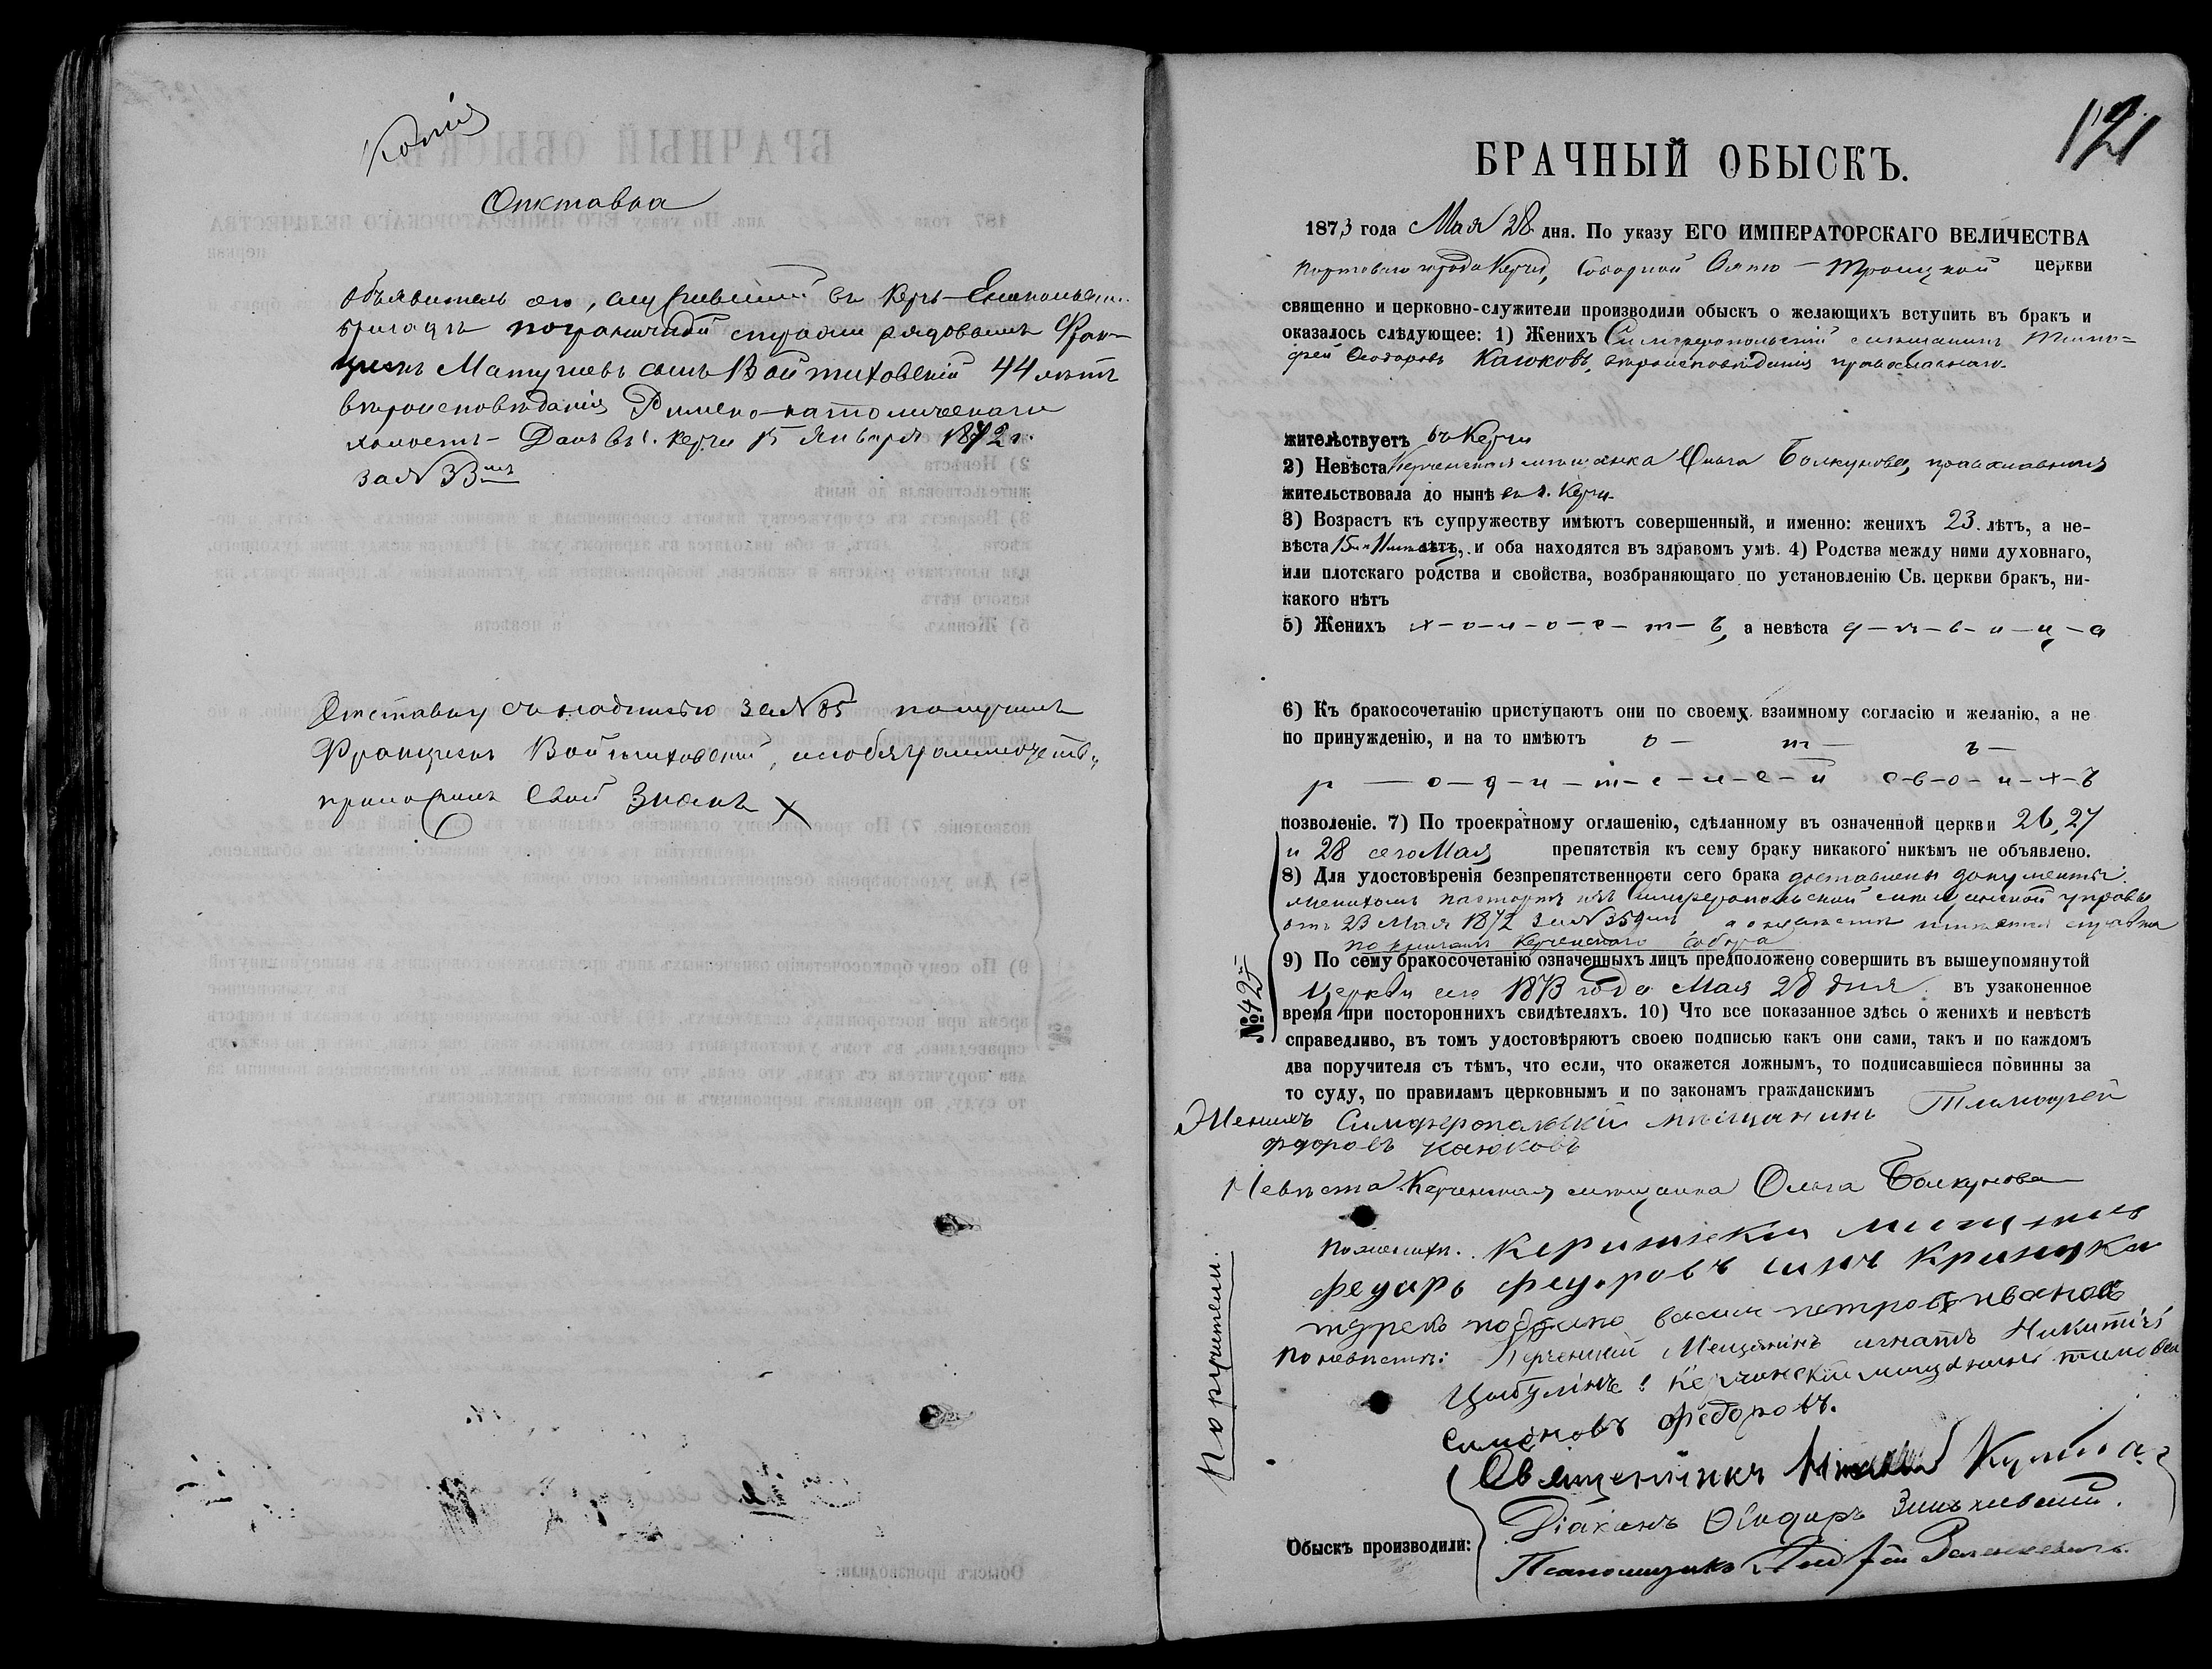 Копія
Отставка
Объявитель сего, служившій въ Керчь-Еникольской
бригадѣ пограничной стражи рядовымъ Фран-
цискъ Матушевъ сынъ Войтиховскій 44 лѣтъ
вѣроисповѣданія Римско-католическаго
холостъ - Данъ въ г. Керчи 15 Января 1872 г.
за № 33мъ
Отставку съ надписью за № 85 получилъ
Францискъ Войтиховскій, а по безграмотств.
приложилъ свой знакъ X
121
БРАЧНЫЙ ОБЫСКЪ.
1873 года Мая 28 дня. По указу ЕГО ИМПЕРАТОРСКАГО ВЕЛИЧЕСТВА
портоваго города Керчи, Соборной Свято-Троицкой церкви
священно и церковно-служители производили обыскъ о желающихъ вступить въ бракъ и
оказалось слѣдующее: 1) Женихъ Симферопольскій мѣщанинъ Тимо=
фей Ѳеодоровъ Каюковъ, вѣроисповѣданія православнаго.
жительствуетъ въ Керчи
2) Невѣста Керченская мѣщанка Ольга Болкунова, православная
жительствовала до нынѣ въ г. Керчи
3) Возрастъ къ супружеству имѣютъ совершенный, и именно: женихъ 23 лѣтъ, а не-
вѣста 15 и 11 лѣтъ, и оба находятся въ здравомъ умѣ. 4) Родства между ними духовнаго,
или плотскаго родства и свойства, возбраняющаго по установленію Св. церкви бракъ, ни-
какого нѣтъ
5) Женихъ х-о-л-о-с-т-ъ, а невѣста д-ѣ-в-и-ц-а
6) Къ бракосочетанію приступаютъ они по своему взаимному согласію и желанію, а не
по принужденію, и на то имѣютъ о - т - ъ -
р - о-д-и-т-е-л-е-й с-в-о-и-х-ъ
позволеніе. 7) По троекратному оглашенію, сдѣланному въ означенной церкви 26, 27
и 28 сего Мая препятствія къ сему браку никакого никѣмъ не объявлено.
8) Для удостовѣренія безпрепятственности сего брака доставлены документы:
женихомъ паспортъ изъ Симферопольской мѣщанской управы
отъ 23 Мая 1872 за № 359мъ а о невѣстѣ справка
по книгамъ Керченскаго собора
9) По сему бракосочетанію означенныхъ лицъ предположено совершить въ вышеупомянутой
церкви сего 1873 года Мая 28 дня въ узаконенное
время при постороннихъ свидѣтеляхъ. 10) Что все показанное здѣсь о женихѣ и невѣстѣ
справедливо, въ томъ удостовѣряютъ своею подписью какъ они сами, такъ и по каждомъ
два поручителя съ тѣмъ, что если, что окажется ложнымъ, то подписавшіеся повинны за
то суду, по правиламъ церковнымъ и по законамъ гражданскимъ
№ 42й
Женихъ Симферопольскій мѣщанинъ Тимофей
Федоровъ Каюковъ
Невѣста Керченская мѣщанка Ольга Болкунова
Поручители:
По женихѣ:
федоровъ
петровъ ивановъ
По невѣстѣ: Керченскій Мещянинъ игнатъ Никитичъ
Цыбулинъ
симоновъ федоровъ.
Обыскъ производили:
Священникъ
Діаконъ Ѳеодоръ Зиньковскій.
Псаломщикъ